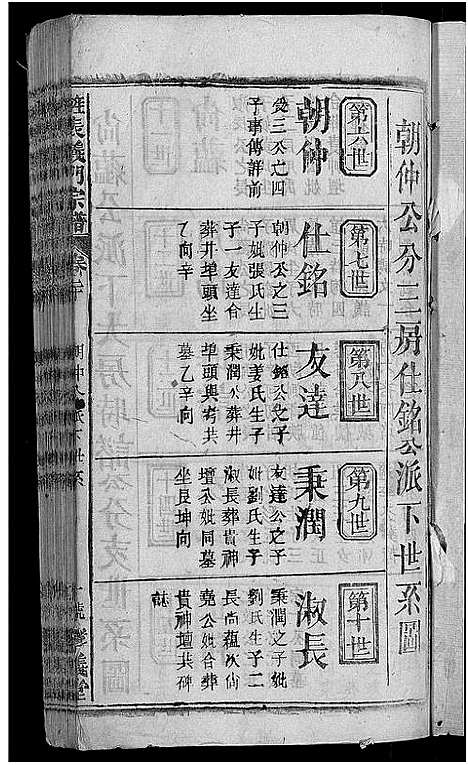 朝仲公分三房仕銘公派下世系圖
第六世
朝仲
三公之四
子事傳詳前
第七世
仕銘
朝仲公之三
子妣張氏生
子一友達合
葬井埠頭坐
乙向辛
第八世
友達
仕銘公之子
妣姜氏生子
秉潤公葬井
埠頭與考共
墓乙辛向
第九世
秉潤
友達公之子
妣劉氏生子
淑長葬貴神
壇公妣同墓
坐艮坤向
第十世
淑長
秉潤之子妣
劉氏生子二
長尚蘊次尚
堯公妣合葬
貴神壇共碑
誌
張義門宗譜
卷